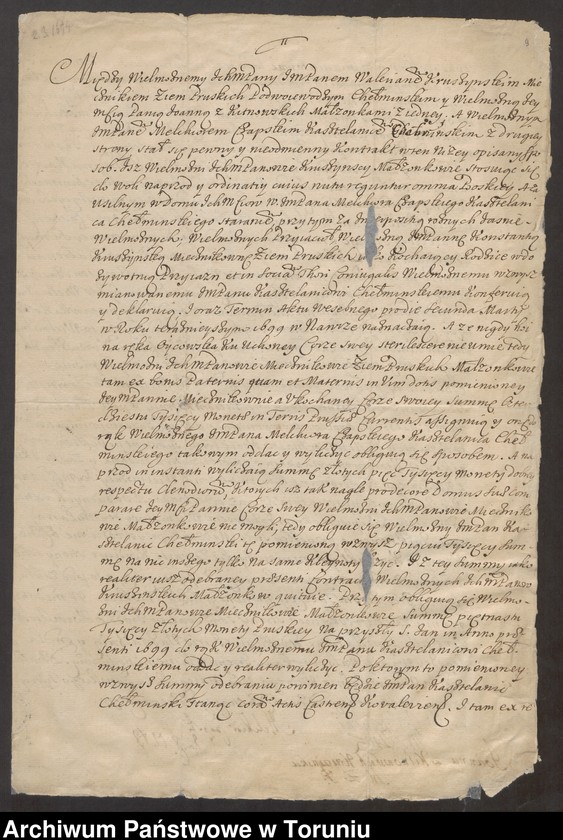 2.3.1699
Między Wielmożnemy Ichmćiany Imćianem Waleriane Kruszynskim Mie
cznikiem Ziem Pruskich Podwoiewodzym Chełminskim y Wielmożną Jey
Mćią Panią Joanną z Kitnowskich Małżonkami z iedney. A Wielmożnym
Imćiane Melchiorem Czapskim Kasztelanice Chełminskim z drugiey
strony stał się pewny y nieodmienny Kontrakt w ten niżey opisany spo
sob. Isz Wielmożni Ichmćianowie Kruszynscy Małżonkowie stosuiąc się
do Woli naprzod y ordinatiy cuius nutu reguntur omnia Boskiey A za
usilnym w Domu Ichmćiow W. Imćiana Melchiora Czapskiego Kasztelani
ca Chełminskiego staranie, przytym za rodnych Jasnie
Wielmożnych, Wielmożnych Przyiacioł Imćiannę Konstantią
Kruszynską Miecznikownę Ziem Pruskich iako Kochaiący Rodzice w do
żywotnią Przyiazn et in Sociam Thori Coniugalis Wielmożnemu wzwysz
mianowanemu Imćianu Kasztelanicowi Chełminskiemu Konferuią
y deklaruią. I oraz Termin Aktu Weselnego pro die Secunda Martij
w Roku teraznieyszym 1699 w Nawrze naznaczaią. A że nigdy
na ręka Oycowska Ku Uchoney Corze Swey sterilescere nie umie tedy
Wielmożni Ichmćianowie Miecznikowie Ziem Pruskich Małżonkowie
tam ex bonis Paternis quam et Maternis in Vim dotis pomienioney
Jeymćiannie Miecznikownie a Ukochaney Corze Swoiey Summę
dziestu Tysięcy Monetæ in Terris Prussiæ Currentis assignuią y oneż do
rąk Wielmożnego Imćiana Melchiora Czapskiego Kasztelanica Cheł
minskiego takowym oddac y wyliczyc obliguią się sposobem. A na
przod in instanti wyliczaią Summę złotych pięc Tysięcy monety
respectu Clenodiorum, Ktorych isz tak nagle pro decore Domus suæ com
parare Jeymćiannie Corze Swey Wielmożni Ichmćianowie Miecznik
owie Małżonkowie nie mogli, tedy obliguie się Wielmożny Imćian Ka
sztelanic Chełminski tę pomienioną wzwysz pięciu Tysięcy Sum
mę na nic inszego tylko na same Kleynoty życ. I z tey Summy iako
realiter iusz odebraney præsenti Contractu Wielmożnych Ichmćianow
Kruszynskich Małżonkow quituie. Przytym obliguią się Wielmo
żni Ichmćianowie Miecznikowie Małżonkowie Summę piętnastu
Tysięcy złotych Monety Pruskiey na przyszły S. Jan in Anno præ
senti 1699 do rąk Wielmożnemu Imćianu Kasztelanicowi Cheł
minskiemu oddac y realiter wyliczyc. Po ktorym to pomienioney
wzwysz Summy odebraniu powinien będzie Imćian Kasztelanic
Chełminski stanąc coram Actis Castrensibus Kovalevien. I tam ex re
Archiwum Państwowe w Toruniu